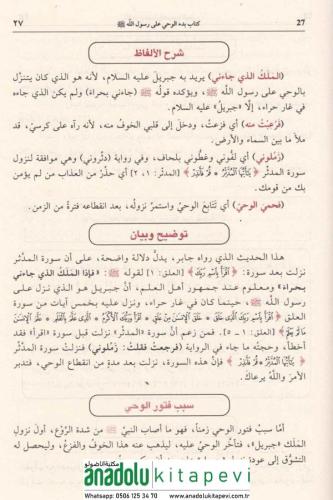 27 كتاب بدء الوحي على رسول الله ﷺ ٢٧
شرح الألفاظ
(المَلَكُ الذي جاءني) يريد به جبريلَ عليه السلام، لأنه هو الذي كان يتنزَّل
بالوحي على رسول الله ﷺ، ويؤكده قولُه ﷺ (جاءني بحراء) ولم يكن الذي جاءه
في غار حراء، إلَّا «جبريل» عليه السلام.
(فَرَعِبْتُ منه) أي فزعتُ، ودخلَ إلى قلبي الخوف منه، لأنه رآه على كرسيّ، قد
ملأ ما بين السماء والأرض.
(زَمِّلوني) أي لفُّوني وغطُّوني بلحاف، وفي رواية (دثِّروني) وهي موافقة لنزول
سورة المدثّر ﴿يَا أَيُّهَا الْمُدَّثِّرُ * قُمْ فَأَنذِرْ﴾ [المدثر: ١، ٢] أي حذِّر من العذاب من لم يؤمن
بك من قومك.
(فحمي الوحيُ) أي تَتَابعَ الوحيُ واستمرَّ نزولُه، بعد انقطاعه فترةً من الزمن.
توضيح وبيان
هذا الحديث الذي رواه جابر، يدلُّ دلالة واضحة، على أن سورة المدَّثر
نزلت بعد سورة: ﴿اقْرَأْ بِاسْمِ رَبِّكَ﴾ [العلق: ١] لقوله ﷺ: «فإذا المَلَكُ الذي جاءني
بحراء» ومعلوم عند جمهور أهل العلم، أنَّ جبريل هو الذي نزل على
رسول الله ﷺ، حينما كان في غار حراء، ونزل عليه بخمس آيات من سورة
﴿اقْرَأْ بِاسْمِ رَبِّكَ الَّذِي خَلَقَ * خَلَقَ الْإِنسَانَ مِنْ عَلَقٍ * اقْرَأْ وَرَبُّكَ الْأَكْرَمُ * الَّذِي عَلَّمَ بِالْقَلَمِ * عَلَّمَ الْإِنسَانَ
مَا لَمْ يَعْلَمْ﴾ [العلق: ١ - ٥]. فمن زعم أنَّ سورة «المدثر» نزلت قبل سورة «اقرأ» فقد
أخطأ، وحجتُه ما جاء في الرواية (فرجعتُ فقلتُ: زَمِّلوني) فنزلتْ سورةُ المدثر
﴿يَا أَيُّهَا الْمُدَّثِّرُ * قُمْ فَأَنذِرْ﴾ فإنَّ هذه السورة، نزلت بعد مدةٍ من انقطاع الوحي، فتدبر
الأمرَ واللَّهُ يرعاك.
سبب فتور الوحي
أمَّا سببُ فتورِ الوحي زمناً، فهو ما أصاب النبيَّ ﷺ من شدة الرَّوْع، أولَ نزولِ
المَلَكِ «جبريل»، فتأخَّر الوحي عليه، ليذهب عنه هذا الخوفُ والفزعُ، وليحصل له
التشوُّق إلى
مكتبة الأناضولو
anadolukitapevi
Whatsapp: 0506 125 34 70 - www.anadolukitapevi.com